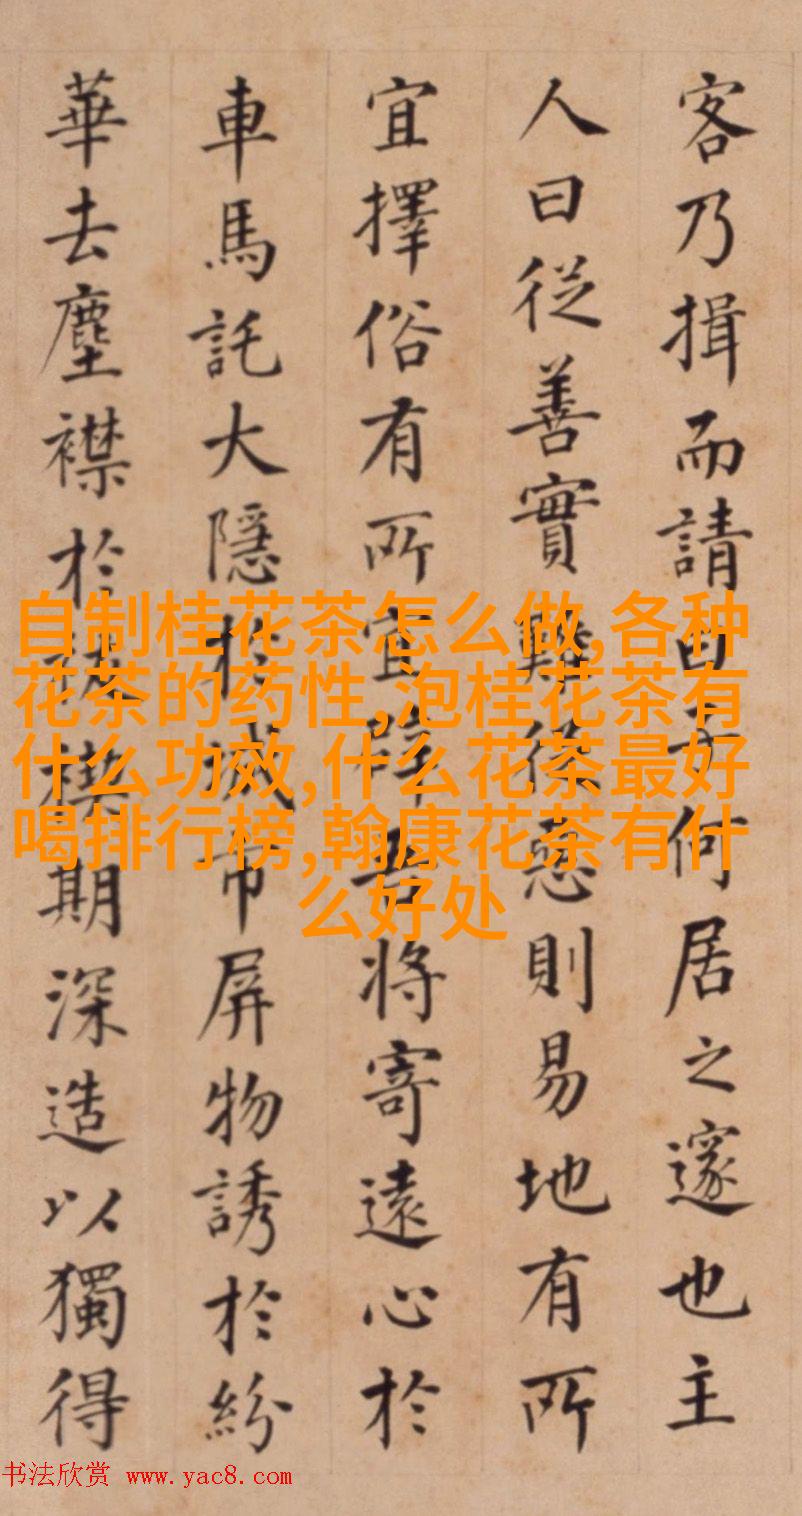 客乃揖而請曰何居之邃也主
人曰從善實難從惡則易地有所
宜擇俗有所宜吾將寄遠心於
車馬託大隱於城市屏物誘於紛
華去塵襟於禊期深造以獨得
自制桂花茶怎么做,各种
花茶的药性,泡桂花茶有
什么功效,什么花茶最好
喝排行榜,翰康花茶有什
么好处
书法欣赏 www.yac8.com